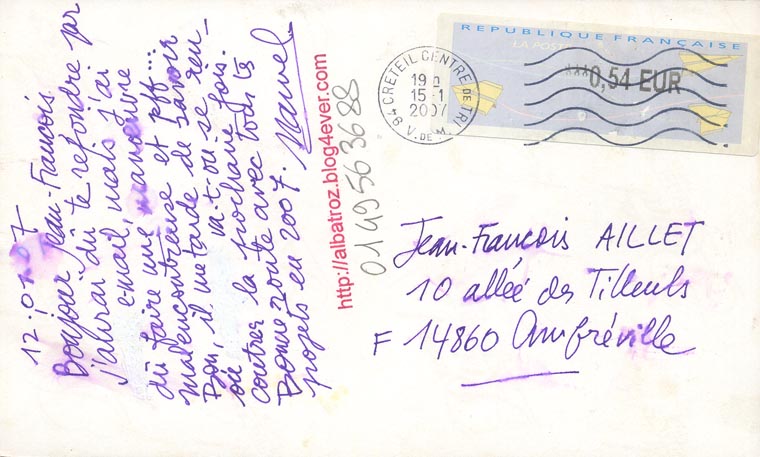 12.01.07
Bonjour Jean-François
j'aurai dû te répondre par
email, mais j'ai
dû faire une manoeuvre
malencontreuse et pff...
Bon, il me tarde de savoir
où va-t-on se ren-
contrer la prochaine fois.
Bonne route avec tous tes
projets en 2007. Manuel
http://albatroz.blog4ever.com
0149563688
REPUBLIQUE FRANÇAISE
LA POSTE
***0,54 EUR
94 CRETEIL CENTRE DE TRI
19 h
15-1
2007
V. DE M.
Jean-François AILLET
10 allée des Tilleuls
F 14860 Amfréville